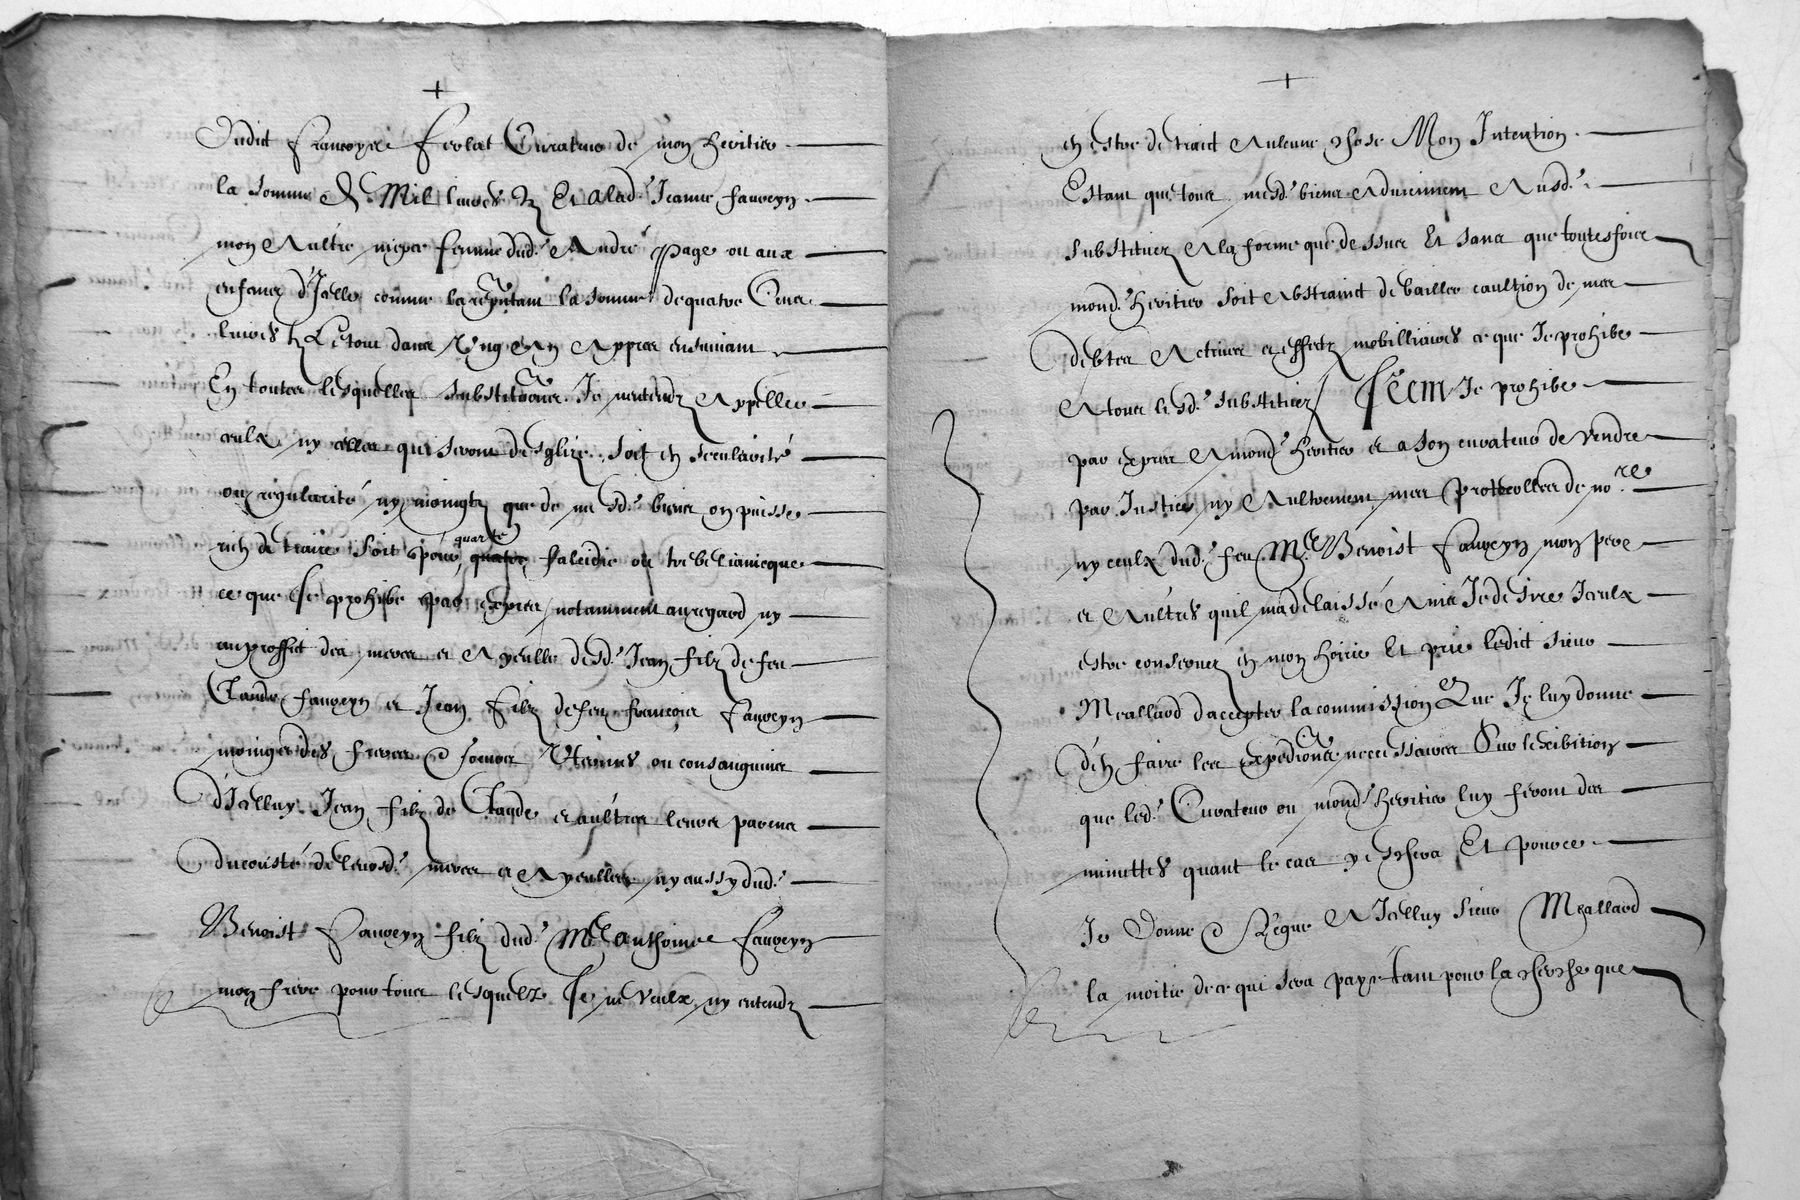 +
Dudict Françoys Ferlat Curateur de mon heritier
la somme de Mil livres tz Et a lad. Jeanne fauveyn
mon Aultre niepce femme dud. André Page ou aux
enfans d'Icelle comme la reputant la somme de quatre Cens
livres tz Le tout dans Ung An Appres ensuivant
En toutes lesquelles substitu͠ons Je nentendz Appeller
ceulx ny celles qui seront desglize soit en secularité
ou regularité ny moingtz que de mesd. biens on puisse
rien distraire soit pour quarte falcidie ou trebelianicque
ce que Je prohibe par expres notamment au regard ny
au proffict des meres et Ayeulle desd. Jean filz de feu
Claude fauveyn et Jean filz de feu françois Fauveyn
moings des freres & soeurs Uterins ou consanguins
d'Icelluy Jean filz de Claude et aultres leurs parens
du cousté de leursd. meres et Ayeulles ny aussy dud.
Benoist Fauveyn filz dud. Me Anthoine Fauveyn
mon frere pour tous lesquelz Je ne veulx ny entendz
+
en estre detraict Aulcune chose Mon Intention
Estant que tous mesd. biens Adviennent Ausd.
substituez A la forme que dessus Et sans que toutesfois
mond. heritier soit Abstrainct de bailler caultion de mes
debtes Actives et effectz mobilliaires ce que Je prohibe
A tous lesd. substituez / Item Je prohibe
par expres A mond. heritier et a son curateur de vendre
par Justice ny Aultrement mes protocolles de no.re
ny ceulx dud. feu Me Benoist Fauveyn mon pere
et Aultres quil ma delaissé Ains Je desire Iceulx
estre conservez en mon hoirie Et prie ledict sieur
Meallard daccepter la commission Que Je luy donne
d'en faire les expedi͠ons necessaires Sur lexibition
que led. Curateur ou mond. heritier luy feront des
minuttes quant le cas y escherra Et pour ce
Je Donne & Legue A Icelluy sieur Meallard
la moitié de ce qui sera payé tant pour la cherche que